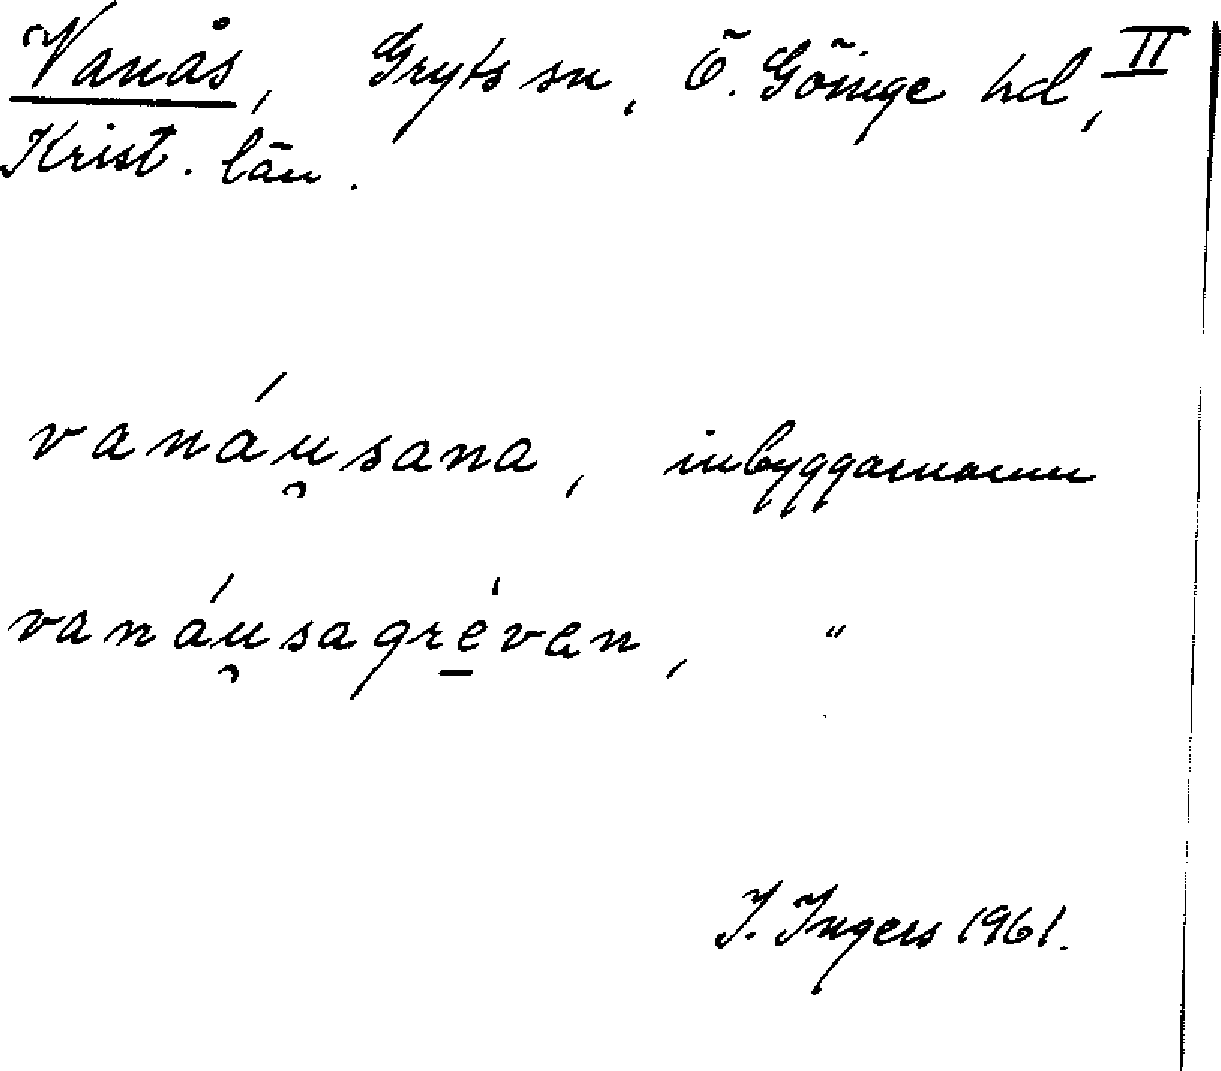 Vanås, Gryts sn, Ö. Göinge hd, II
Krist. län.
vanáu̯sana, inbyggarnamn
vanáu̯sagré̱ven, "
I. Ingers 1961.